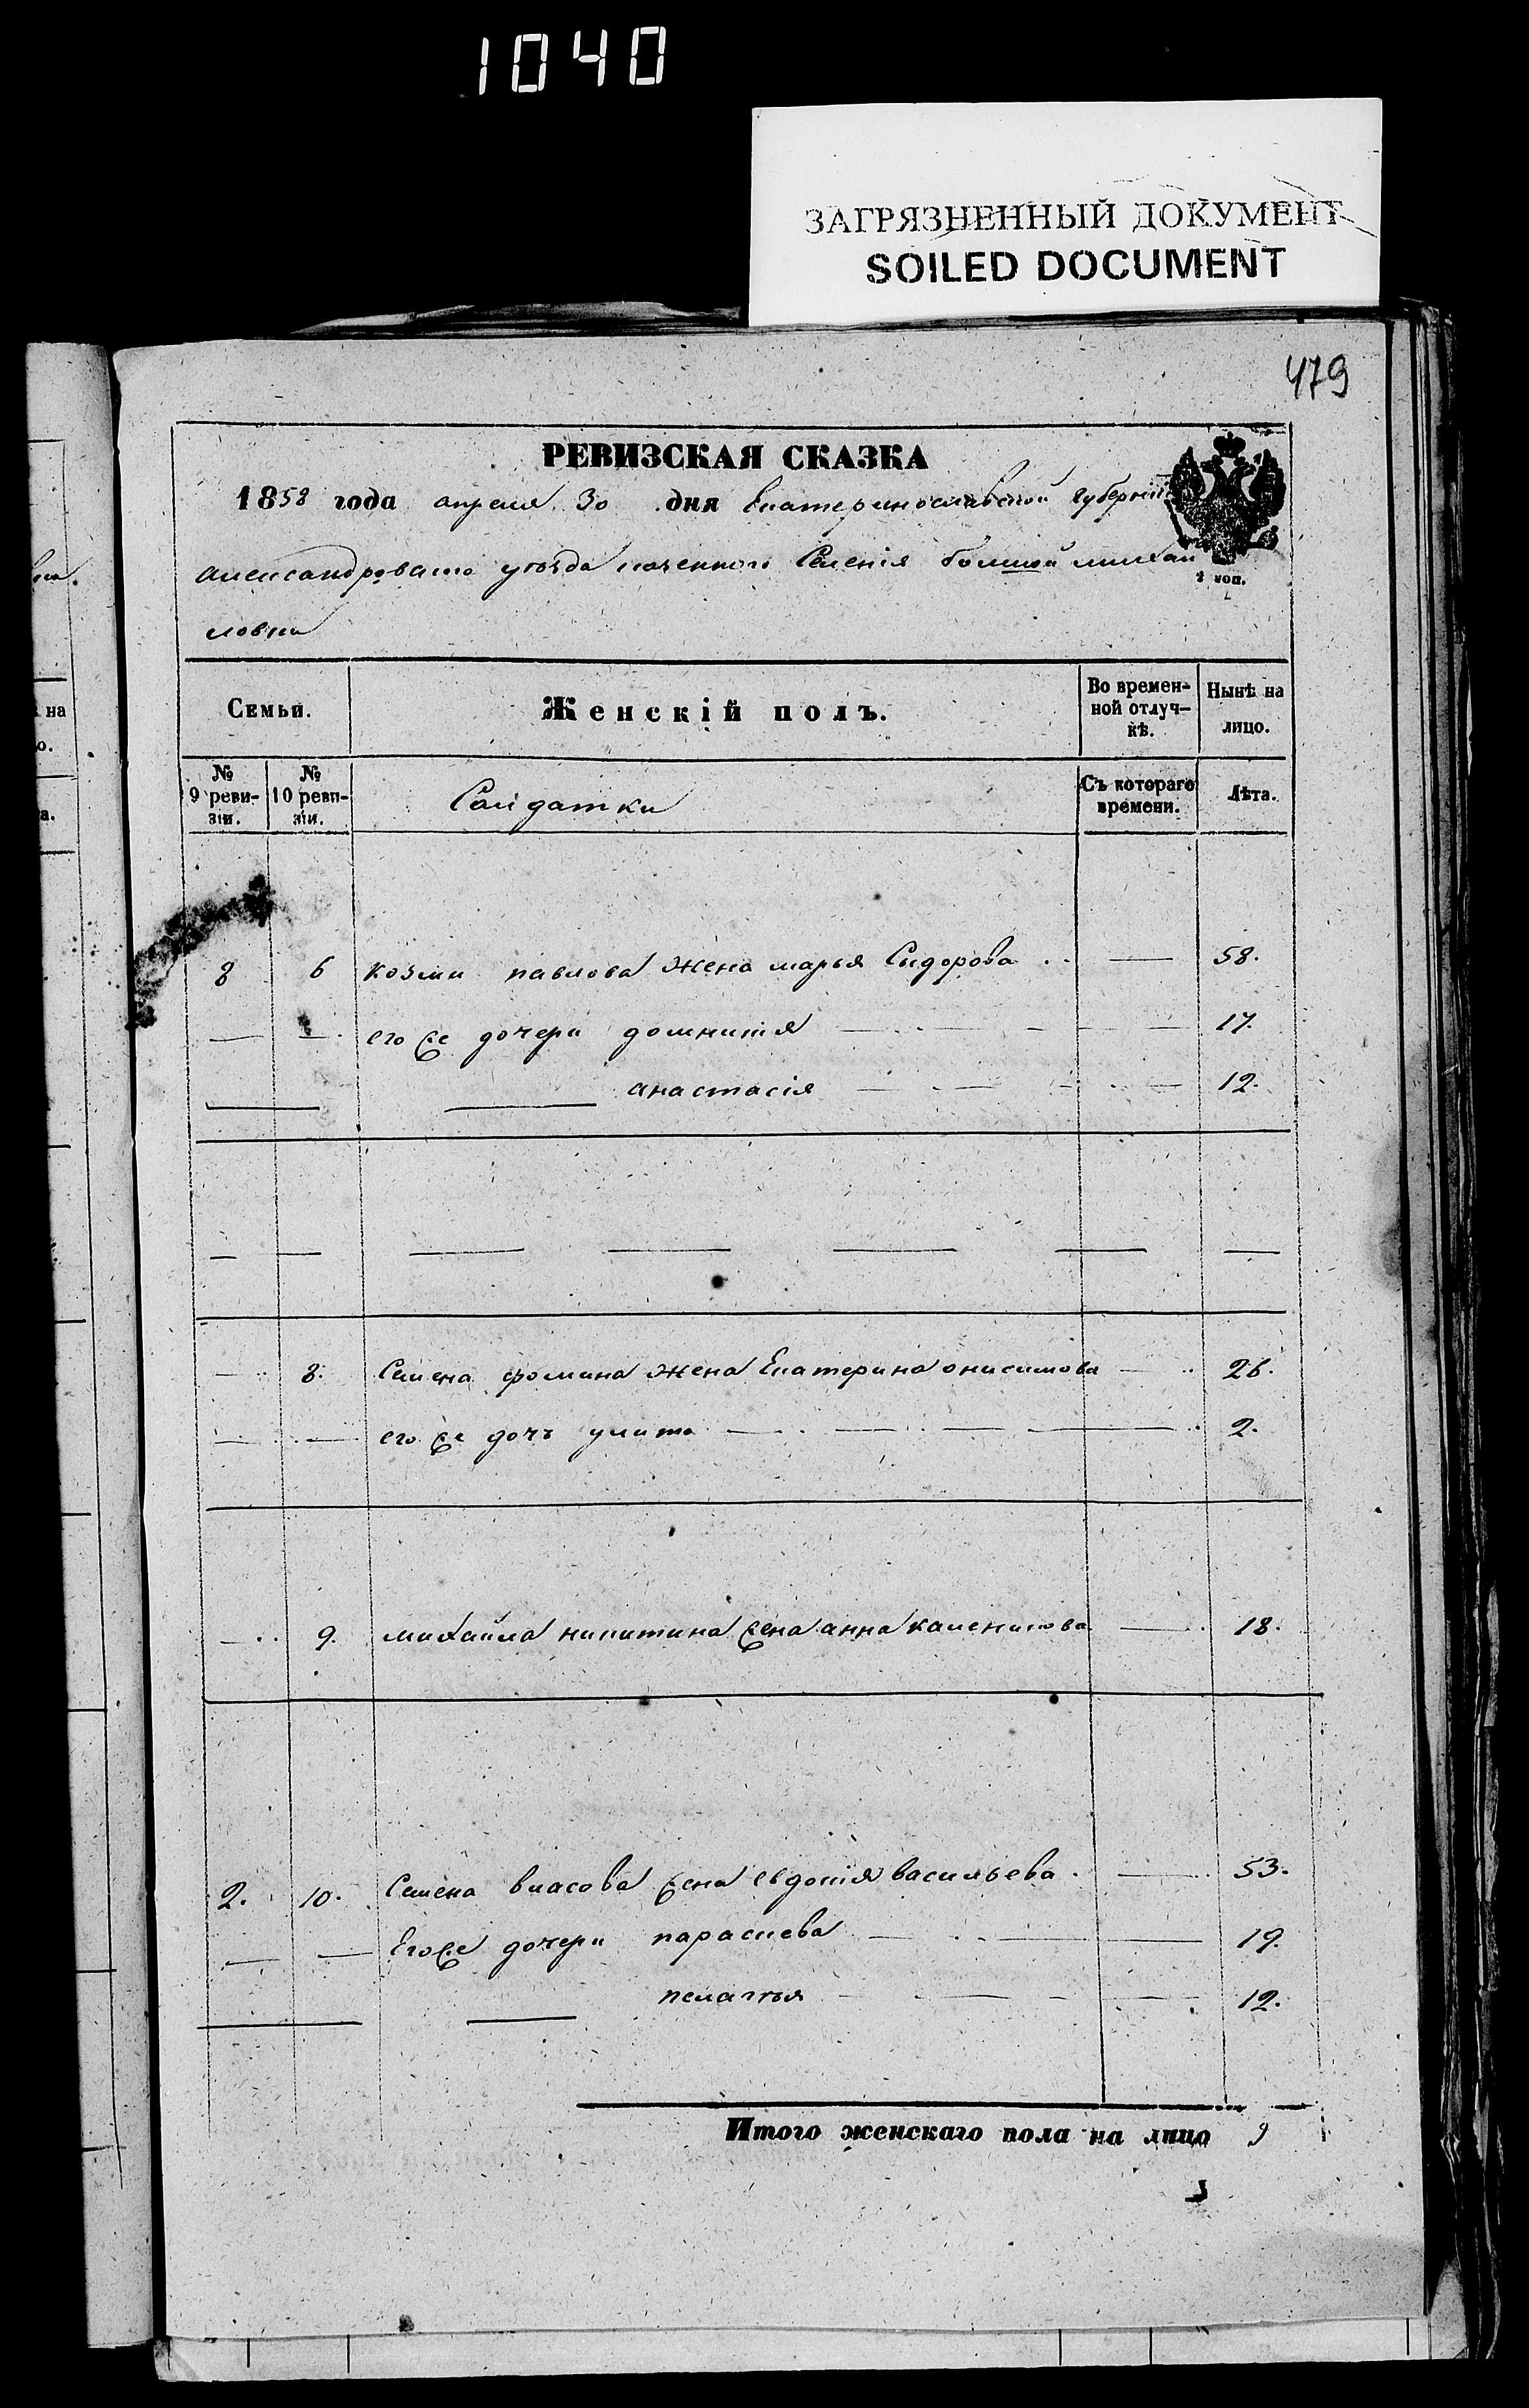 1040
ЗАГРЯЗНЕННЫЙ ДОКУМЕНТ
SOILED DOCUMENT
479
РЕВИЗСКАЯ СКАЗКА
1858 года апреля 30 дня Екатеринославской Губерніи
александровскаго уезда казенного Селенія большой михай
ловки
2 коп.
Семьи. Женскій полъ. Во времен-ной отлуч-кѣ. Нынѣ на лицо.
№ 9 реви-зіи. № 10 реви-зіи. Солдатки Съ котораго времени. Лѣта.
8 6 козми павлова жена марья Сидорова 58.
его же дочери домникія 17.
анастасія 12.
8. Семена фомина жена Екатерина онисимова 26.
его же дочъ улита 2.
9. михайла никитина жена анна каленикова 18.
2. 10. Семена власова жена евдокія васильева 53.
Его же дочери параскева 19.
пелагея 12.
Итого женскаго пола на лицо 9